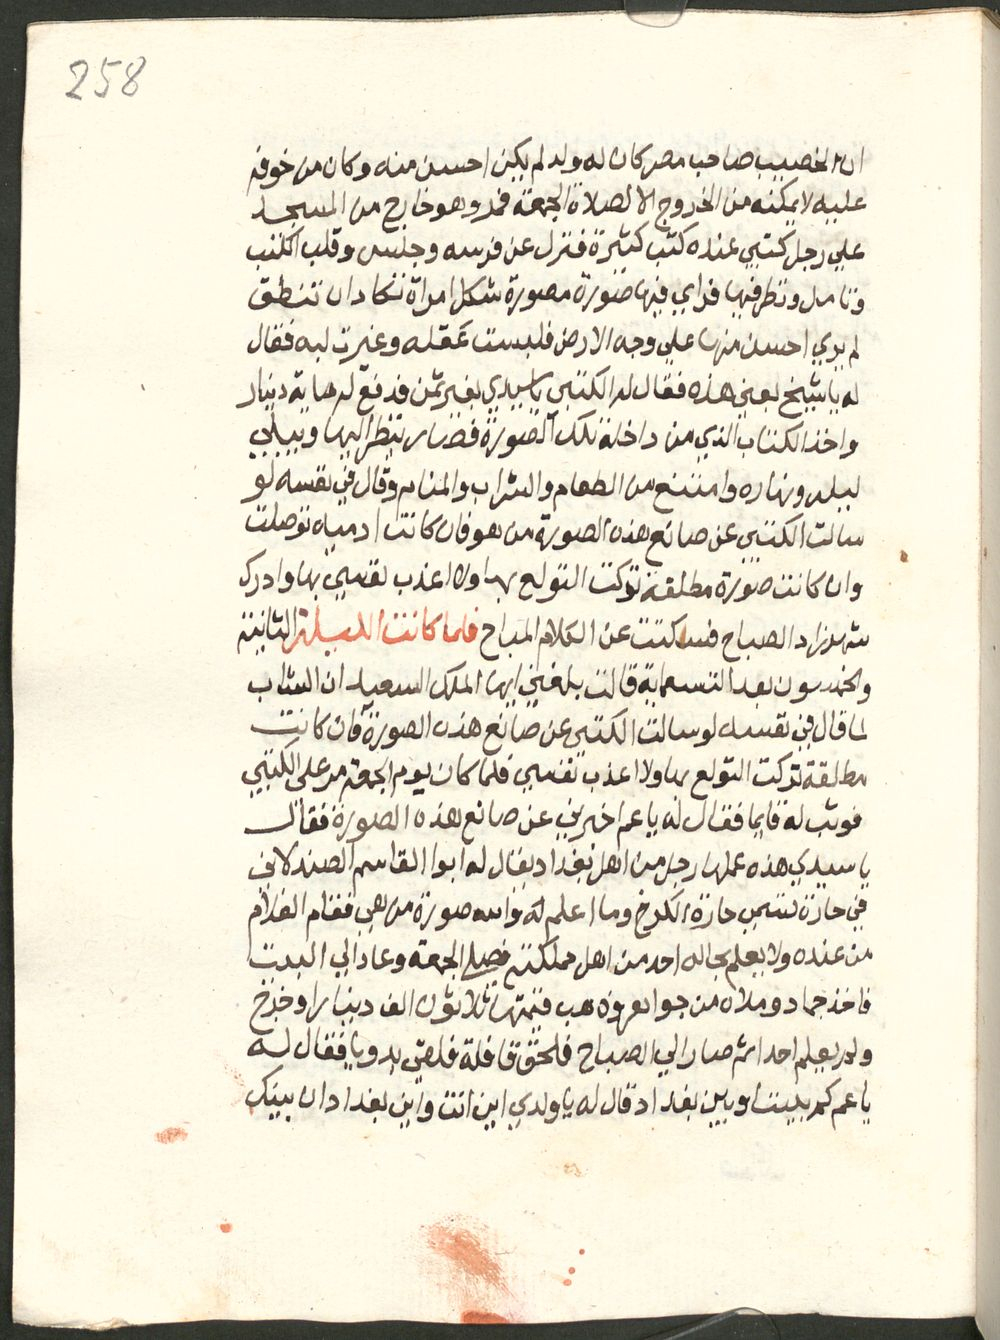 258
ان الخصيب صاحب مصر كان له ولد لم يكن احسن منه وكان من خوفه
عليه لا يمكنه من الخروج الا لصلاة الجمعة فمر وهو خارج من المسجد
علي رجل كتبي عنده كتب كثيرة فنزل عن فرسه وجلس وقلب الكتب
وتامل ونظر فيها فراي فيها صورة مصورة شكل امراة تكاد ان تنطق
لم يري احسن منها علي وجه الارض فلبست عقله وغيرت لبه فقال
له يا شيخ بعني هذه فقال له الكتبي يا سيدي بغير ثمن فدفع له ماية دينار
واخذ الكتاب الذي من داخله تلك الصورة فصار ينظر اليها ويبكي
ليله ونهاره وامتنع من الطعام والشراب والمنام وقال في نفسه لو
سالت الكتبي عن صانع هذه الصورة من هو فان كانت ادميه توصلت
وان كانت صورة مطلقة تركت التولع بها ولا اعذب نفسي بها وادرك
شهرزاد الصباح فسكتت عن الكلام المباح فلما كانت الليلة الثانية
والخمسون بعد التسعماية قالت بلغني ايها الملك السعيد ان الشاب
لما قال في نفسه لو سالت الكتبي عن صانع هذه الصورة فان كانت
مطلقة تركت التولع بها ولا اعذب نفسي فلما كان يوم الجمعة مر علي الكتبي
فوثب له قايما فقال له يا عم اخبرني عن صانع هذه الصورة فقال
يا سيدي هذه عملها رجل من اهل بغداد يقال له ابوا القاسم الصندلاني
في حارة تسمي حارة الكرخ وما اعلم له والله صورة من هي فقام الغلام
من عنده ولا يعلم بحاله احد من اهل مملكته فصلي الجمعة وعاد الي البيت
فاخذ جما دو ملاه من جواهر وذهب قيمتها ثلاثون الف دينار وخرج
ولم يعلم احد اثم صار الي الصباح فلحق قافلة فلقي بدويا فقال له
يا عم كم بيننا وبين بغداد قال له يا ولدي اين انت واين بغداد ان بينك